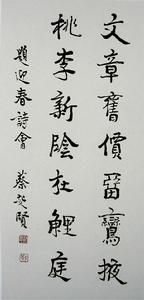 文章舊價留鸞掖
桃李新陰在鯉庭
題迎春詩會
蔡
賢